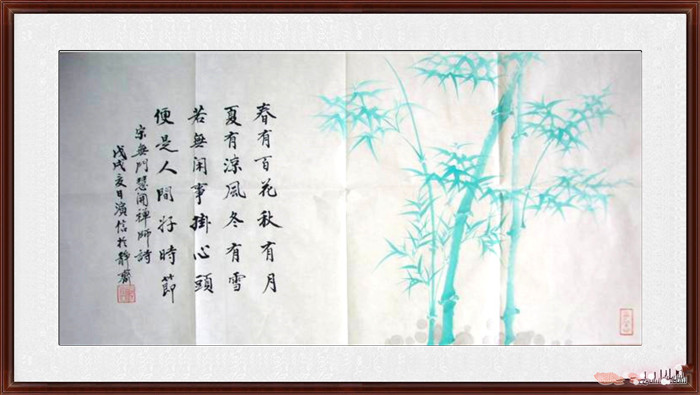 春有百花秋有月
夏有涼風冬有雪
若無閑事掛心頭
便是人間好時節
宗無門慧開禪師詩
戊戌夏日濱信於靜齋